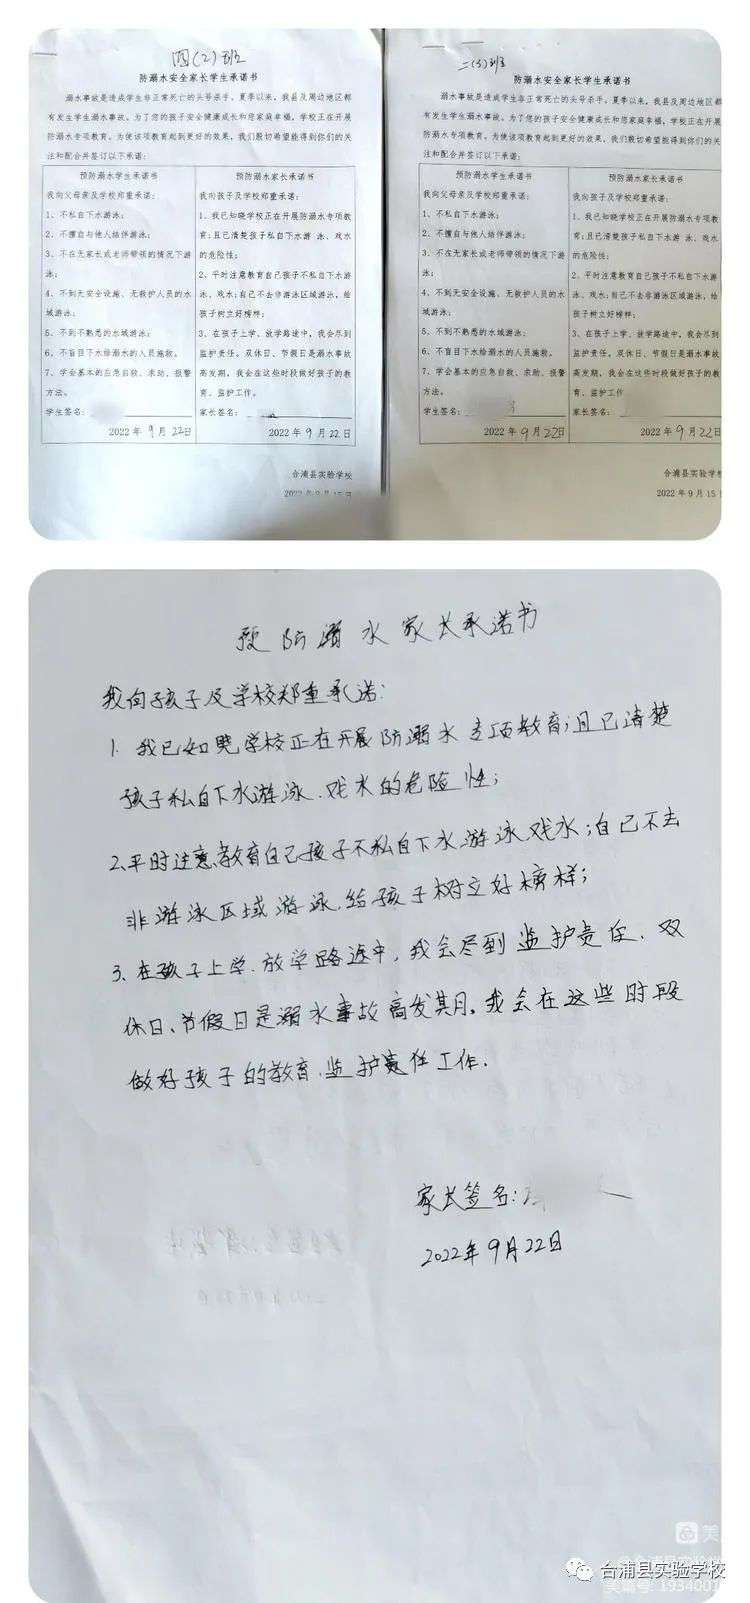 四(2)班
防溺水安全家长学生承诺书
溺水事故是造成学生非正常死亡的头号杀手。夏季以来，我县及周边地区都
有发生学生溺水事故。为了您的孩子安全健康成长和您家庭幸福，学校正在开展
防溺水专项教育。为使该项教育起到更好的效果，我们殷切希望能得到你们的关
注和配合并签订以下承诺：
预防溺水学生承诺书
我向父母亲及学校郑重承诺：
1、不私自下水游泳；
2、不擅自与他人结伴游泳；
3、不在无家长或老师带领的情况下游
泳；
4、不到无安全设施、无救护人员的水
域游泳；
5、不到不熟悉的水域游泳；
6、不盲目下水给溺水的人员施救。
7、学会基本的应急自救、求助、报警
方法。
学生签名：
2022年9月22日
预防溺水家长承诺书
我向孩子及学校郑重承诺：
1、我已知晓学校正在开展防溺水专项教
育；且已清楚孩子私自下水游 泳、戏水
的危险性；
2、平时注意教育自己孩子不私自下水游
泳、戏水；自己不去非游泳区域游泳，给
孩子树立好榜样；
3、在孩子上学、放学路途中，我会尽到
监护责任。双休日、节假日是溺水事故
高发期，我会在这些时段做好孩子的教
育、监护工作。
家长签名：
2022年9月22日
合浦县实验学校
2022年9月15日
二(3)班
防溺水安全家长学生承诺书
溺水事故是造成学生非正常死亡的头号杀手。夏季以来，我县及周边地区都
有发生学生溺水事故。为了您的孩子安全健康成长和您家庭幸福，学校正在开展
防溺水专项教育。为使该项教育起到更好的效果，我们殷切希望能得到你们的关
注和配合并签订以下承诺：
预防溺水学生承诺书
我向父母亲及学校郑重承诺：
1、不私自下水游泳；
2、不擅自与他人结伴游泳；
3、不在无家长或老师带领的情况下游
泳；
4、不到无安全设施、无救护人员的水
域游泳；
5、不到不熟悉的水域游泳；
6、不盲目下水给溺水的人员施救。
7、学会基本的应急自救、求助、报警
方法。
学生签名：
2022年9月22日
预防溺水家长承诺书
我向孩子及学校郑重承诺：
1、我已知晓学校正在开展防溺水专项教
育；且已清楚孩子私自下水游 泳、戏水
的危险性；
2、平时注意教育自己孩子不私自下水游
泳、戏水；自己不去非游泳区域游泳，给
孩子树立好榜样；
3、在孩子上学、放学路途中，我会尽到
监护责任。双休日、节假日是溺水事故
高发期，我会在这些时段做好孩子的教
育、监护工作
家长签名：
2022年9月22日
合浦县实验学校
2022年9月15
预防溺水家长承诺书
我向孩子及学校郑重承诺：
1. 我已知晓学校正在开展防溺水专项教育；且已清楚
孩子私自下水游泳、戏水的危险性；
2、平时注意教育自己孩子不私自下水游泳戏水；自己不去
非游泳区域游泳，给孩子树立好榜样；
3、在孩子上学、放学路途中，我会尽到监护责任、双
休日、节假日是溺水事故高发期，我会在这些时段
做好孩子的教育、监护责任工作。
家长签名：
2022年9月22日
美
合浦县实验学校
美篇号: 1934001